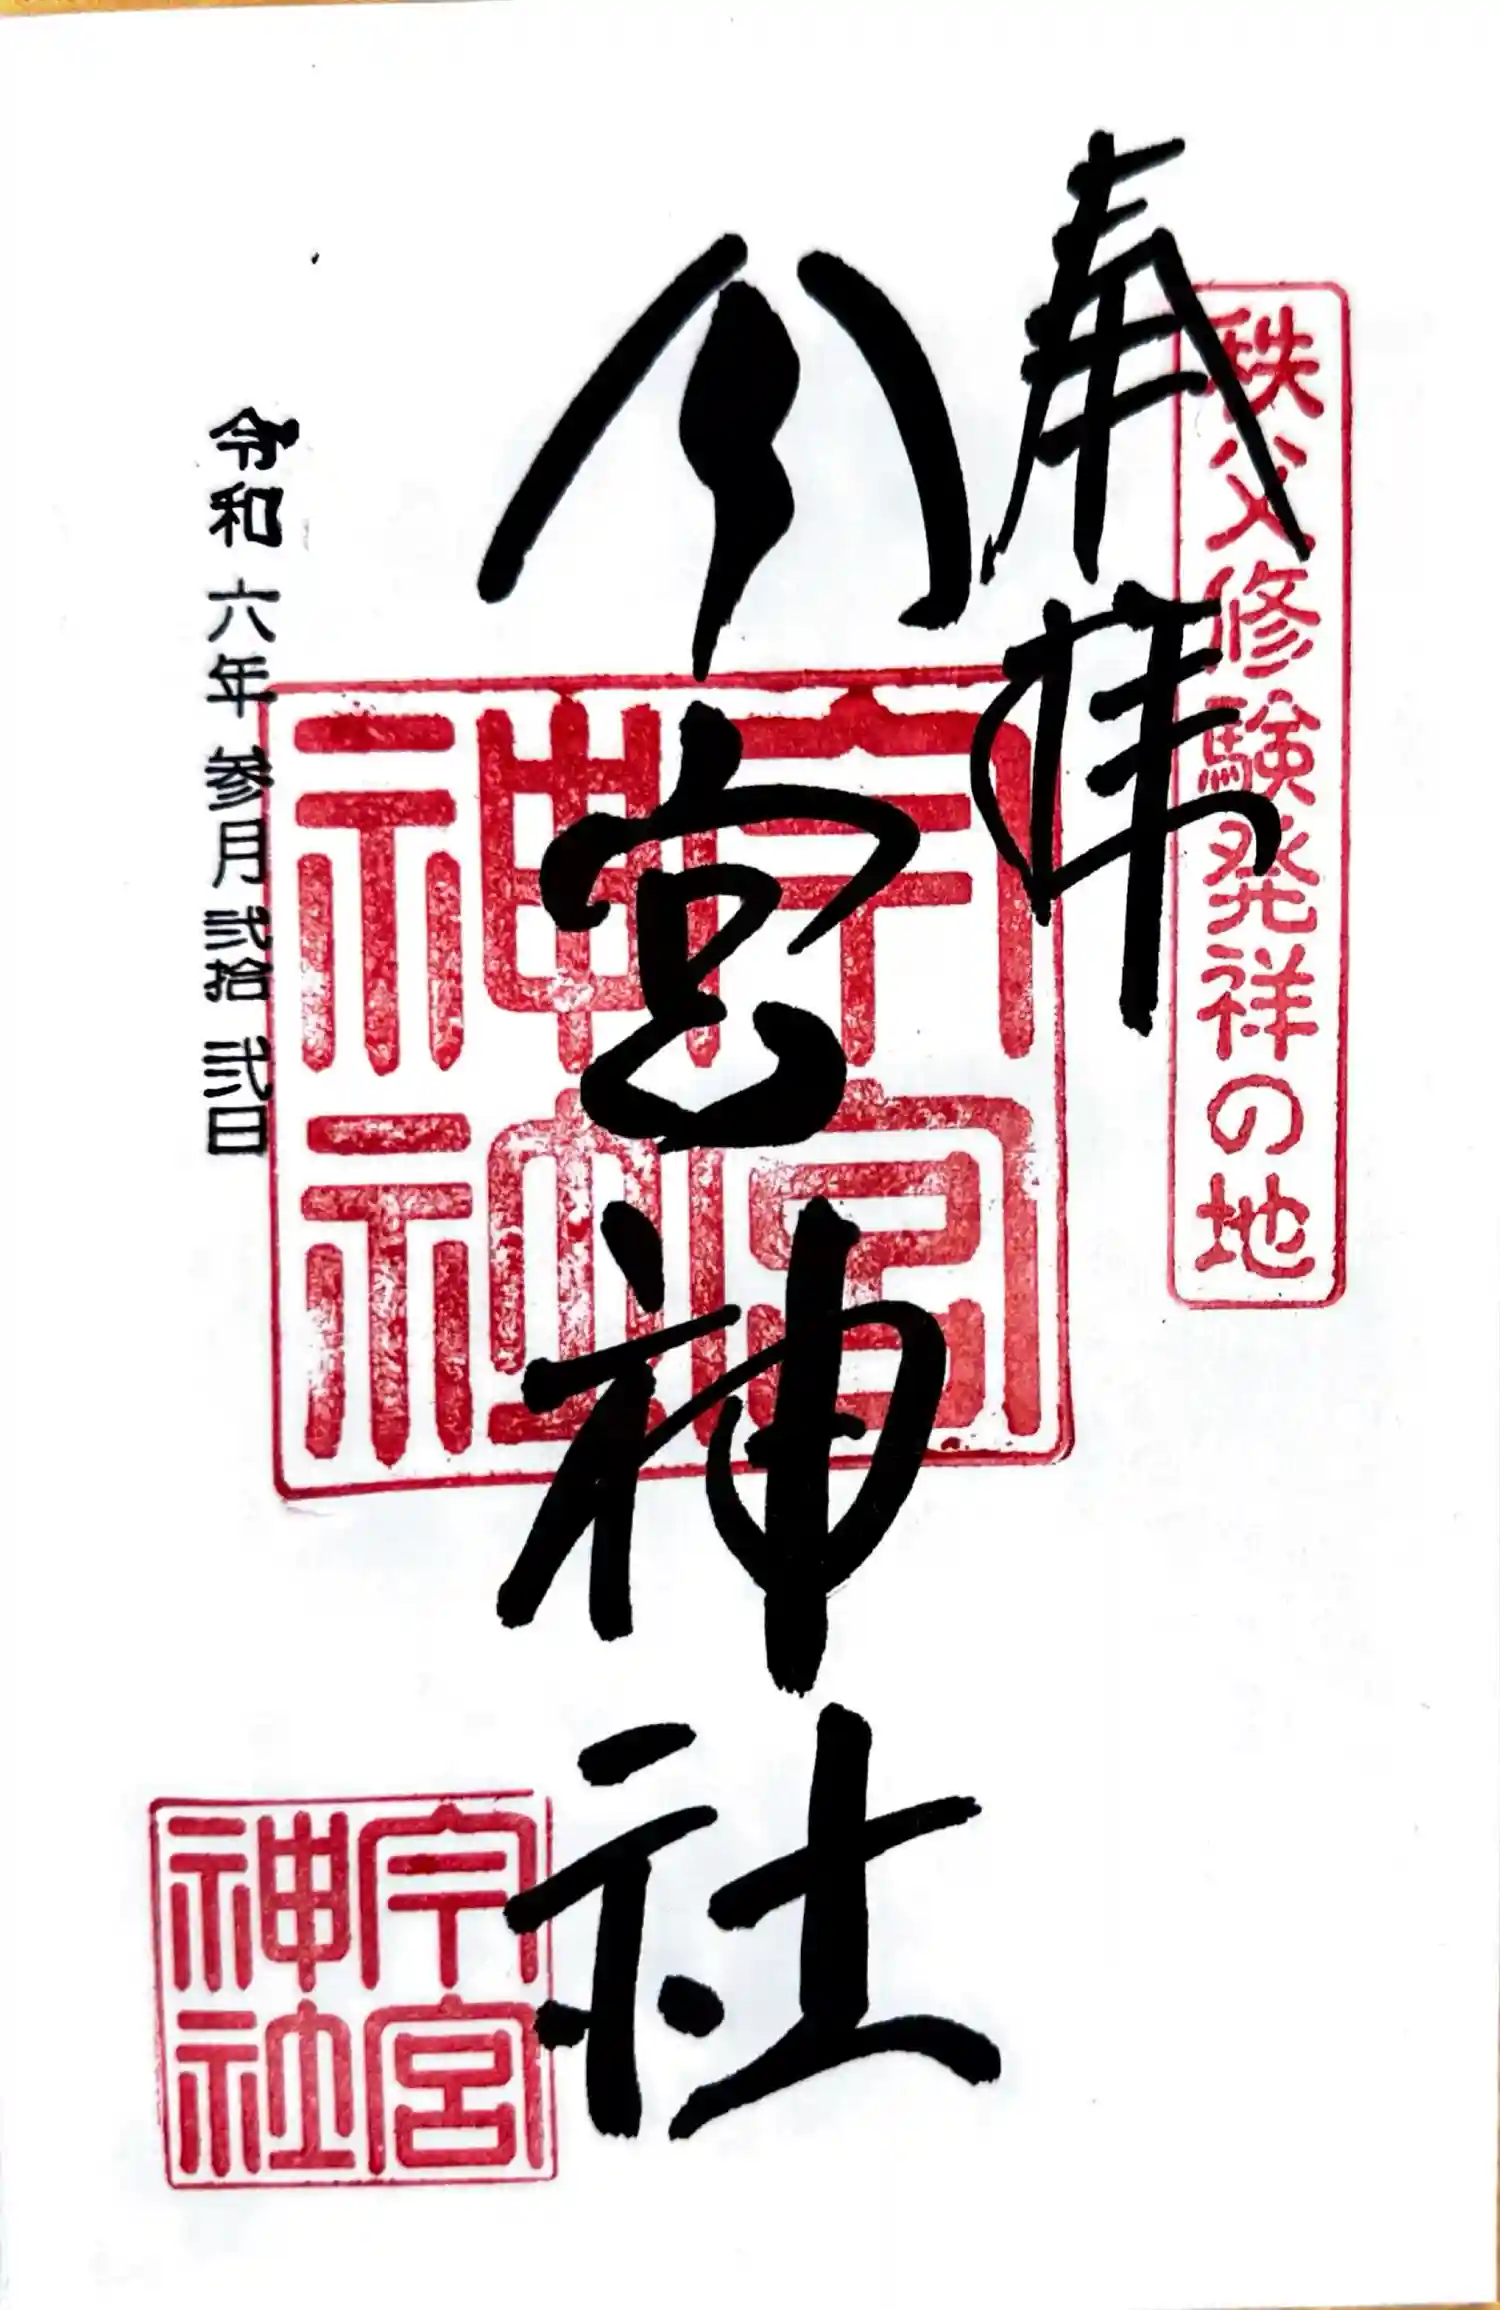 秩父修験発祥の地
奉拝
宇宮神社
宇宮
神社
令和六年参月弐拾弐日
宇宮
神社